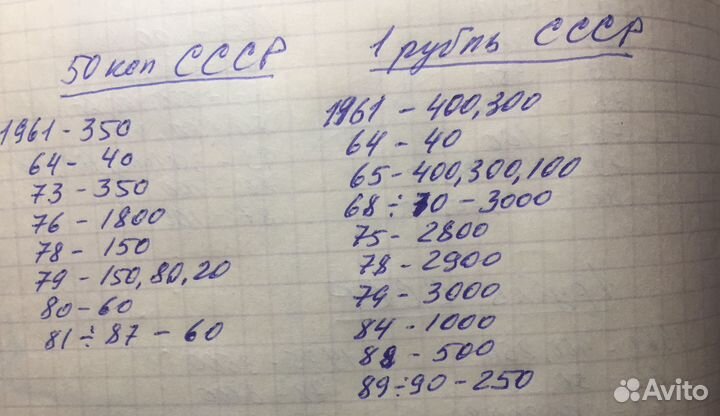 50 коп СССР
1961 - 350
64 - 40
73 - 350
76 - 1800
78 - 150
79 - 150, 80, 20
80 - 60
81 ÷ 87 - 60
1 рубль СССР
1961 - 400, 300
64 - 40
65 - 400, 300, 100
68 ÷ 70 - 3000
75 - 2800
78 - 2900
79 - 3000
84 - 1000
88 - 500
89 ÷ 90 - 250
Avito